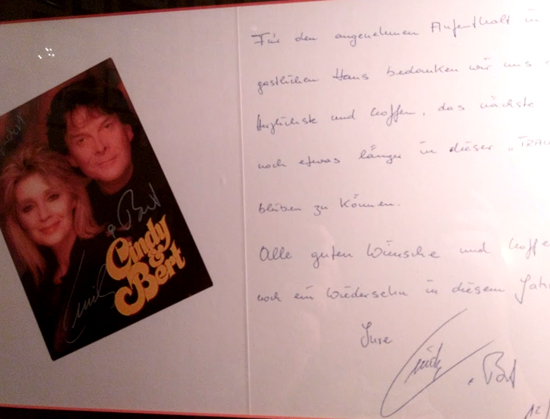 Cindy
&
Bert
Cindy
& Bert
Für den angenehmen Aufenthalt in
gastlichen Haus bedanken wir uns
Herzlichste und hoffen, das nächste
noch etwas länger in dieser "TRAU
bleiben zu können.
Alle guten Wünsche und hoffe
noch ein Wiedersehn in diesem Jah
Eure
Cindy
& Bert